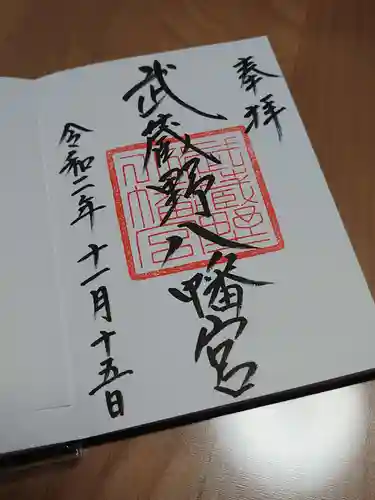 奉拝
武蔵野八幡宮
令和二年十一月十五日
武蔵野八幡宮